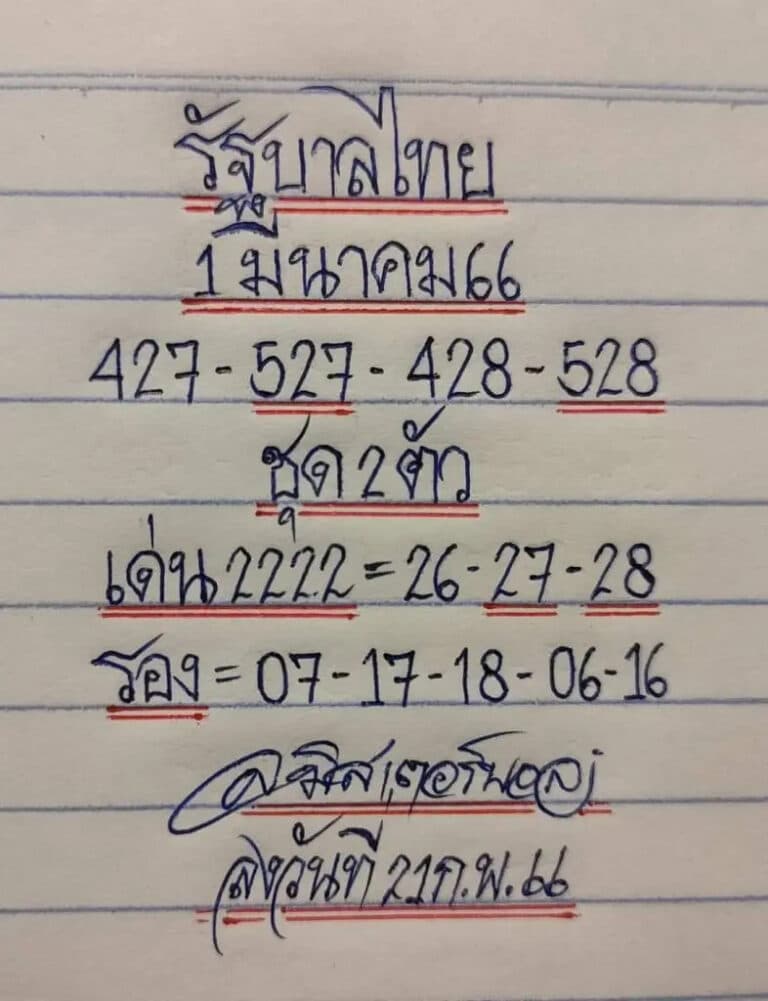 รัฐบาลไทย
1 มีนาคม 66
427 - 527 - 428 - 528
ชุด 2 ตัว
เด่น 2222 = 26 - 27 - 28
รอง = 07 - 17 - 18 - 06 - 16
ลงวันที่ 21 ก.พ. 66